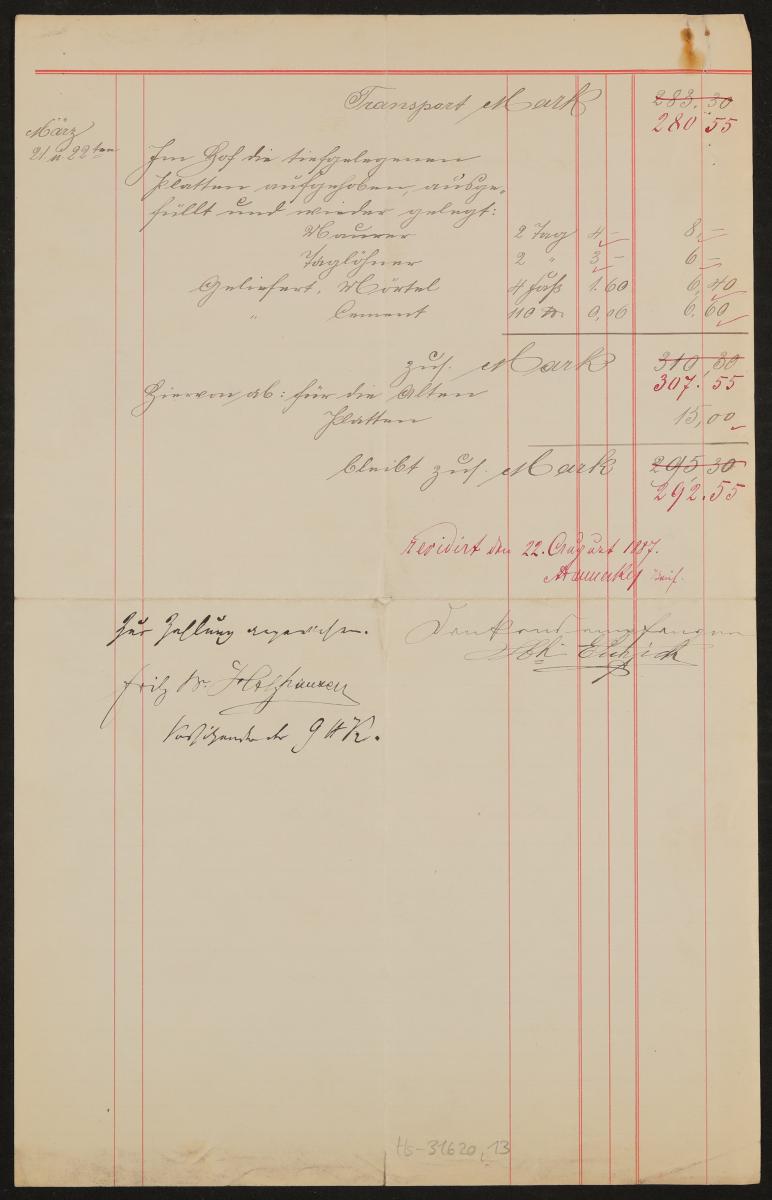 Transport Mark 283.30
280 55
März
21 u 22ten
Im Hof die tiefgelegenen
Platten aufgehoben, ausge-
füllt und wieder gelegt:
Maurer 2 Tag 4 – 8 –
Taglöhner 2 " 3 – 6 –
Geliefert. Mörtel 4 Faß 1.60 6,40
" Cement 110 0,06 6.60
zus. Mark 310,30
307.55
Hiervon ab: für die Alten
Platten 15,00
bleibt zus. Mark 295,30
292.55
revidirt den 22. August 1887.
Zur Zahlung angewiesen.
Dankend empfangen
Fritz v. Holzhausen
Vorsitzender der
Hs-31620,13